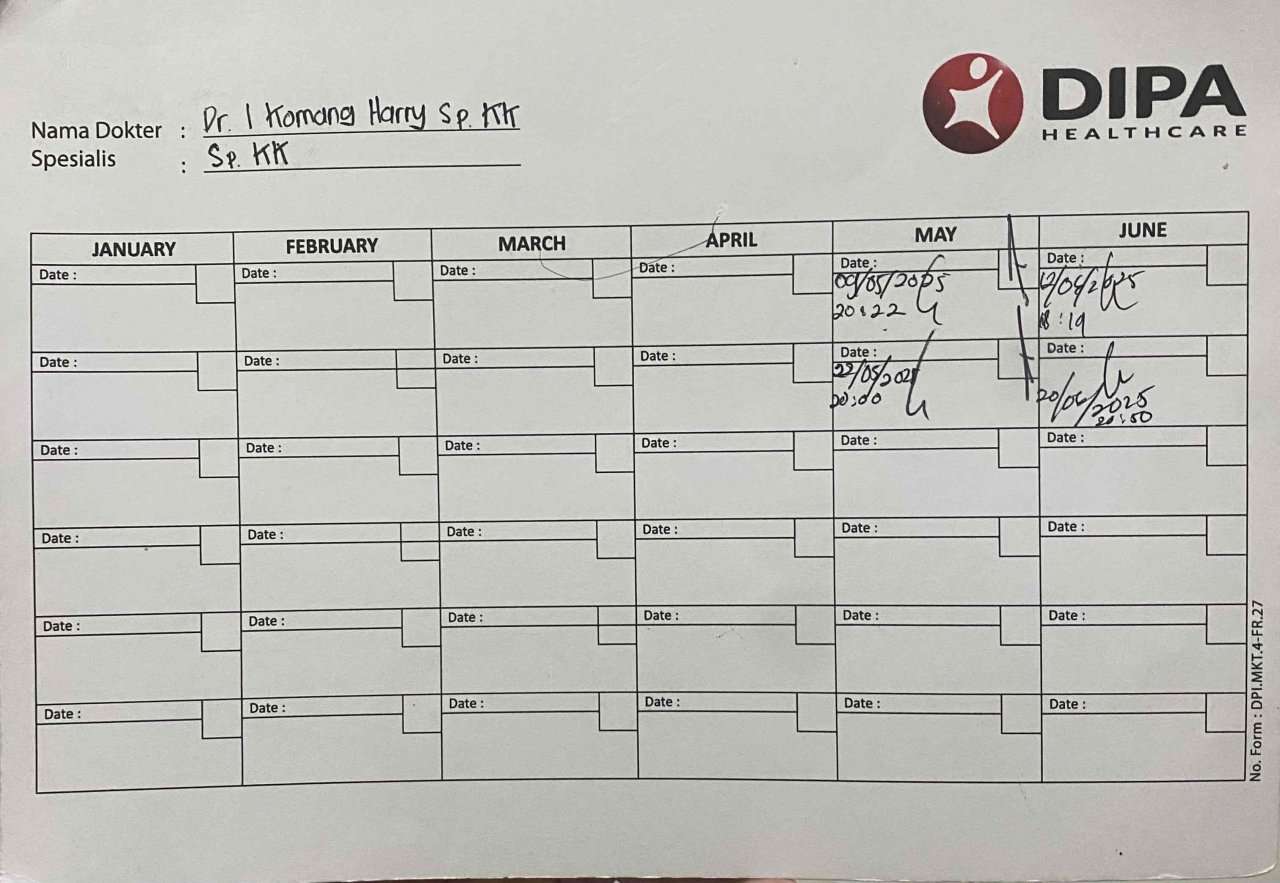 DIPA
HEALTHCARE
Nama Dokter : Dr. I Komang Harry Sp. KK
Spesialis : Sp. KK
JANUARY FEBRUARY MARCH APRIL MAY JUNE
Date : Date : Date : Date : Date : Date :
09/05/2025 12/06/2025
20:22 18:19
Date : Date : Date : Date : Date : Date :
22/05/2025 20/06/2025
20:00 20:50
Date : Date : Date : Date : Date : Date :
Date : Date : Date : Date : Date : Date :
Date : Date : Date : Date : Date : Date :
Date : Date : Date : Date : Date : Date :
No. Form : DPI.MKT.4-FR.27